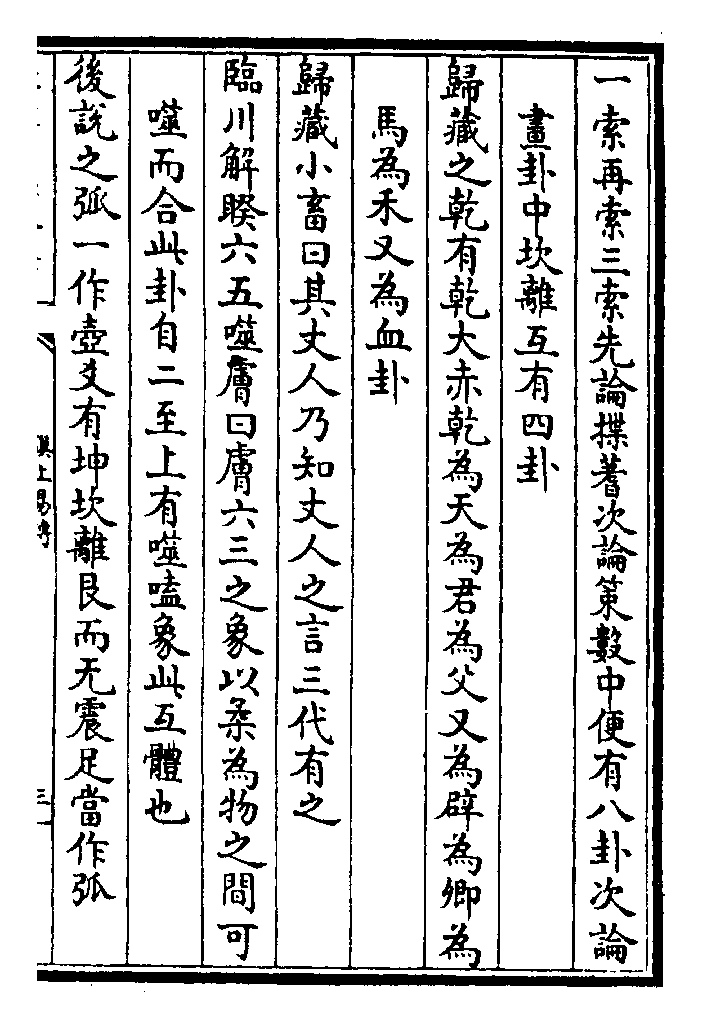 一索再索三索先論揲蓍次論策數中便有八卦次論
畫卦中坎離互有四卦
歸藏之乾有乾大赤乾為天為君為父又為辟為卿為
馬為禾又為血卦
歸藏小畜曰其丈人乃知丈人之言三代有之
臨川解睽六五噬膚曰膚六三之象以柔為物之間可
噬而合此卦自二至上有噬嗑象此互體也
後說之弧一作壺爻有坤坎離艮而无震足當作弧
三